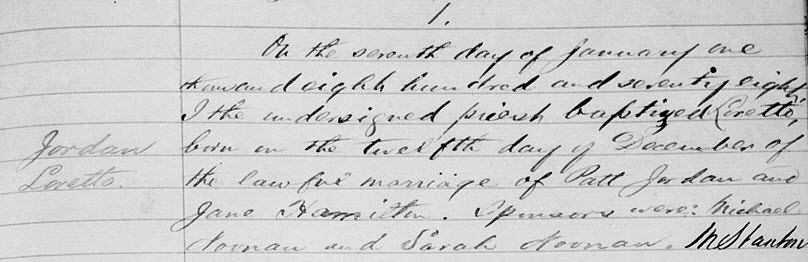 1.
On the seventh day of January one
thousand eighh hundred and seventy eight,
I the undersigned priesh baptized Loretto,
Jordan
born on the twelfth day of December of
Loretto.
the lawful marriage of Patt Jordan and
Jane Hamilton. Sponsors were: Michael
Noonan and Sarah Noonan. McStanton